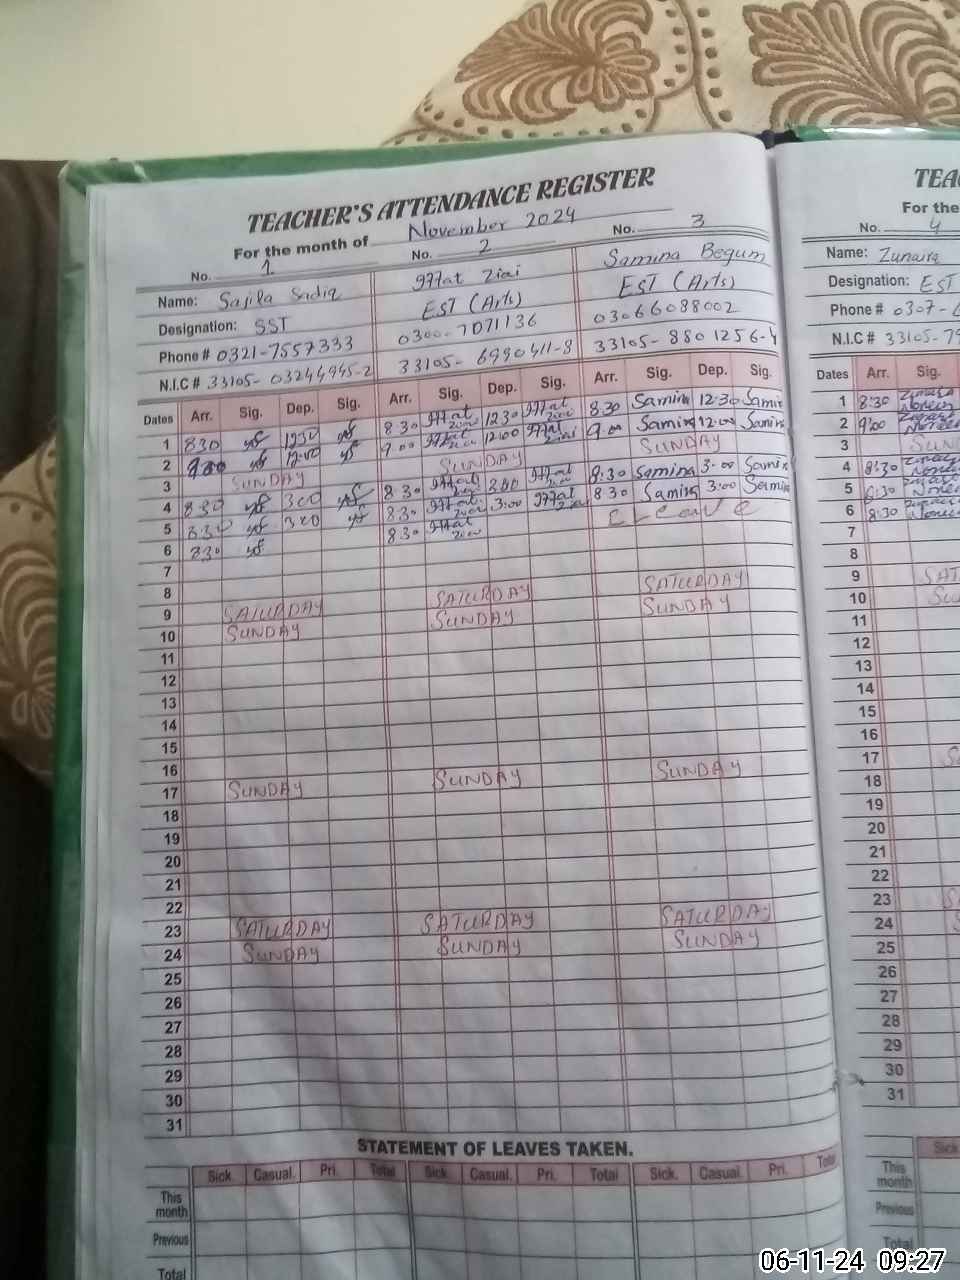 TEACHER'S ATTENDANCE REGISTER
For the month of November 2024
No. 1 No. 2 No. 3
Name: Sajila Sadiq Iffat Ziai Samina Begum
Designation: SST EST (Arts) EST (Arts)
Phone # 0321-7557333 0300-7071136 03066088002
N.I.C # 33105-03244945-2 33105-6990411-8 33105-8801256-4
Dates Arr. Sig. Dep. Sig. Arr. Sig. Dep. Sig. Arr. Sig. Dep. Sig.
1 830 1230 8:30 Iffat Ziai 1230 Iffat Ziai 8:30 Samina 12:30 Samin
2 900 12:00 9:00 Iffat Ziai 12:00 Iffat Ziai 9:00 Samina 12:00 Samin
3 SUNDAY SUNDAY SUNDAY
4 830 300 8:30 Iffat Ziai 3:00 Iffat Ziai 8:30 Samina 3:00 Samin
5 830 300 8:30 Iffat Ziai 3:00 Iffat Ziai 8:30 Samina 3:00 Samina
6 830 8:30 Iffat Ziai C Leave
7
8
9 SATURDAY SATURDAY SATURDAY
10 SUNDAY SUNDAY SUNDAY
11
12
13
14
15
16
17 SUNDAY SUNDAY SUNDAY
18
19
20
21
22
23 SATURDAY SATURDAY SATURDAY
24 SUNDAY SUNDAY SUNDAY
25
26
27
28
29
30
31
STATEMENT OF LEAVES TAKEN.
Sick. Casual. Pri. Total Sick. Casual. Pri. Total Sick. Casual. Pri. Total
This month
Previous
Total
TEAC
For the
No. 4
Name: Zunaira
Designation: EST
Phone # 0307-6
N.I.C # 33105-79
Dates Arr. Sig.
1 8:30 Noreen
2 9:00 Noreen
3 SUN
4 8:30 Noreen
5 8:30 Noreen
6 8:30 Noreen
7
8
9 SAT
10 SU
11
12
13
14
15
16
17 S
18
19
20
21
22
23 S
24 S
25
26
27
28
29
30
31
Sick
This month
Previous
Total
06-11-24 09:27